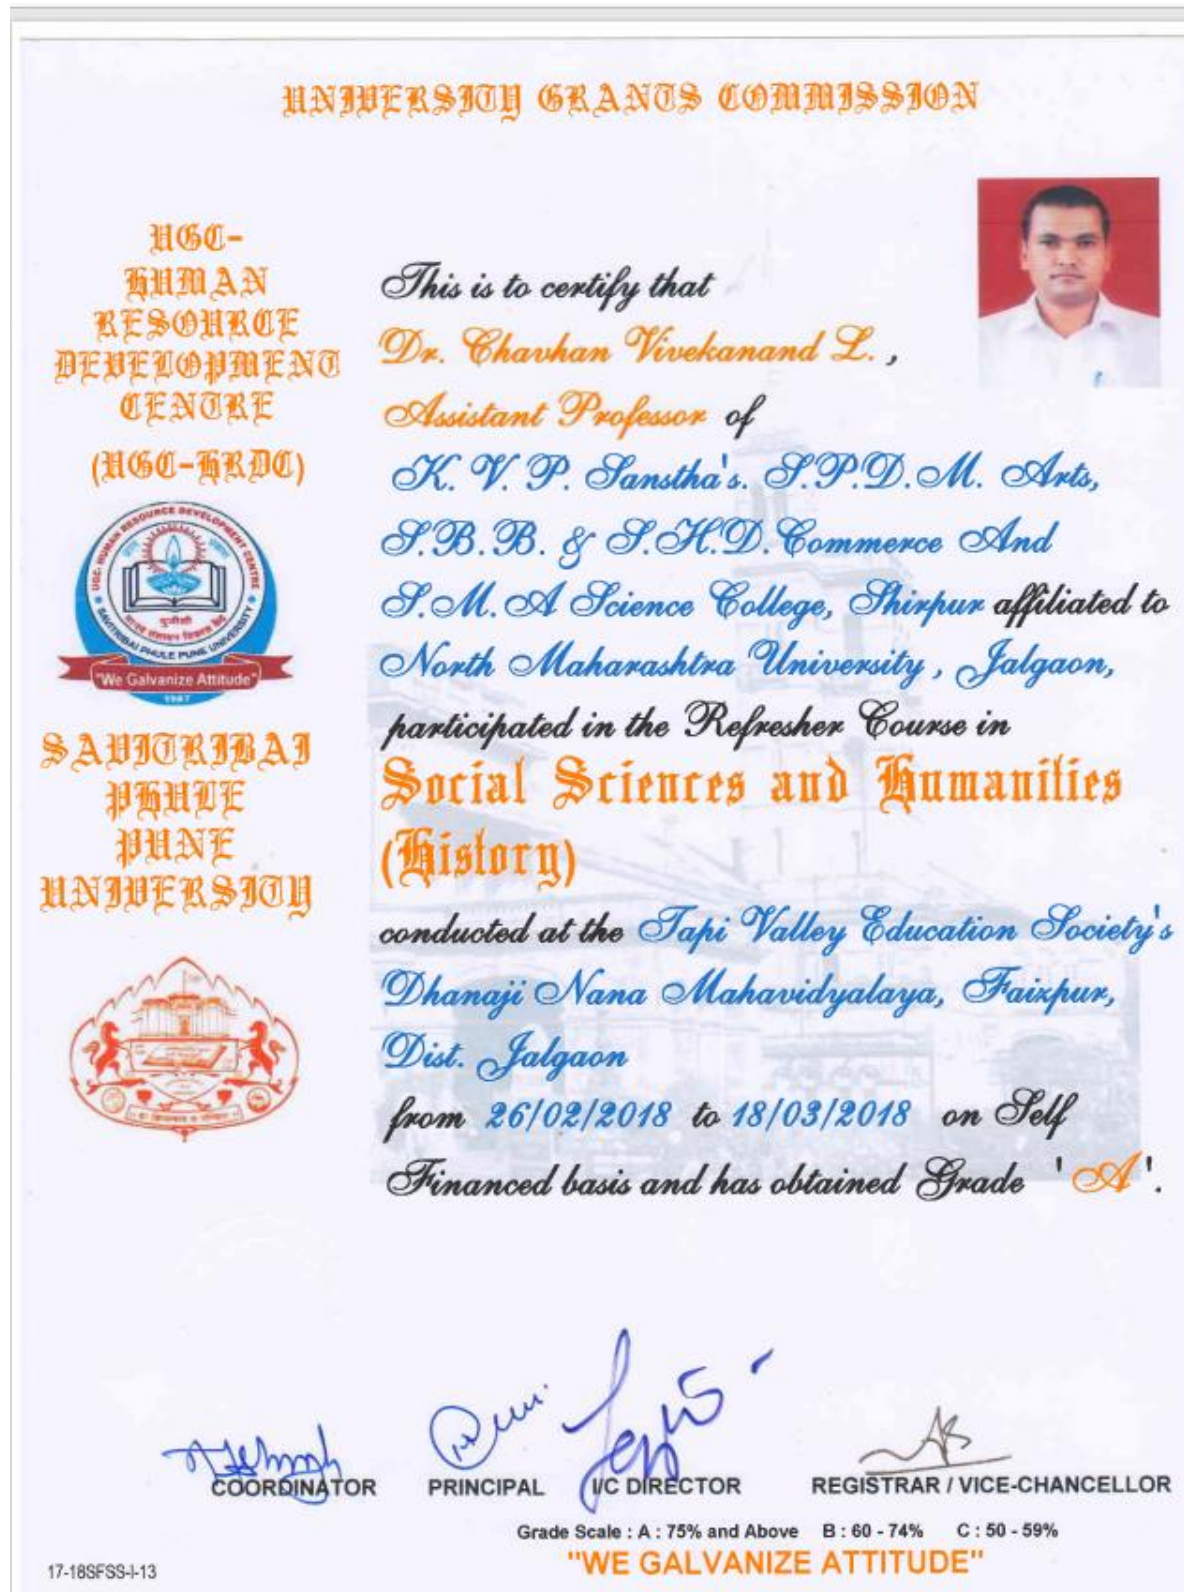 UNIVERSITY GRANTS COMMISSION
UGC-
HUMAN
RESOURCE
DEVELOPMENT
CENTRE
(UGC-HRDC)
UGC- HUMAN RESOURCE DEVELOPMENT CENTRE
SAVITRIBAI PHULE PUNE UNIVERSITY
यूजीसी
मानव संसाधन विकास केंद्र
"We Galvanize Attitude"
1987
SAVITRIBAI
PHULE
PUNE
UNIVERSITY
This is to certify that
Dr. Chavhan Vivekanand L. ,
Assistant Professor of
K. V. P. Sanstha's. S.P.D.M. Arts,
S.B.B. & S.H.D.Commerce And
S.M.A Science College, Shirpur affiliated to
North Maharashtra University , Jalgaon,
participated in the Refresher Course in
Social Sciences and Humanities
(History)
conducted at the Tapi Valley Education Society's
Dhanaji Nana Mahavidyalaya, Faizpur,
Dist. Jalgaon
from 26/02/2018 to 18/03/2018 on Self
Financed basis and has obtained Grade 'A'.
COORDINATOR PRINCIPAL I/C DIRECTOR REGISTRAR / VICE-CHANCELLOR
Grade Scale : A : 75% and Above B : 60 - 74% C : 50 - 59%
"WE GALVANIZE ATTITUDE"
17-18SFSS-I-13